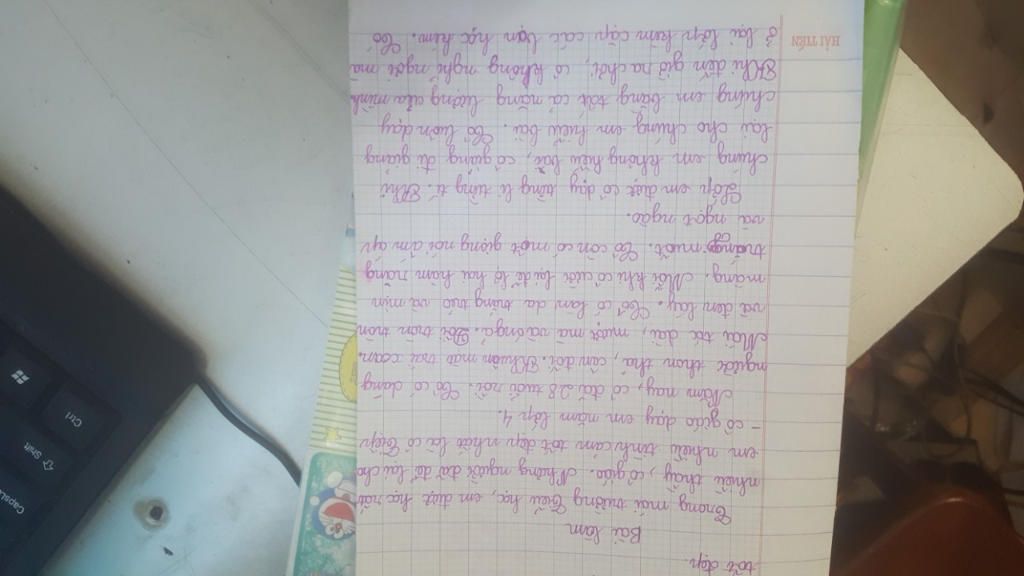 tốt đẹp.
Bài làm
Trong mái trường Tiểu học, em được học rất
nhiều thầy, cô giáo. Nhưng người đã để lại cho
em nhiều tình cảm tốt đẹp nhất là cô Tiệp
- cô giáo dạy em năm lớp 4.
Năm nay, cô đã 28 tuổi rồi. Cô có dáng
người thon thả, cân đối. Khuôn mặt trái xoan.
Mái tóc dài, mượt mà và óng ả. Đôi mắt tròn
và đen láy. Cô có làn da trắng trẻo và mịn
màng. Mỗi khi cô cười lại để lộ hai hàm răng
trắng muốt. Cô còn có một giọng nói ấm áp
và ngọt ngào.
Lớp em được cô dạy từng li từng tí. Khi
chúng em không hiểu bài, cô giảng đi giảng
lại cho chúng em hiểu bài. Cô luôn dạy
chúng em bằng tất cả năng lượng của mình
Khi đến giờ ra chơi, cô không nghỉ ngơi mà
ở lại lớp kèm cặp các bạn học kém. Cô
HẢI TIẾN
Ctrl
Shift
CapsLoc